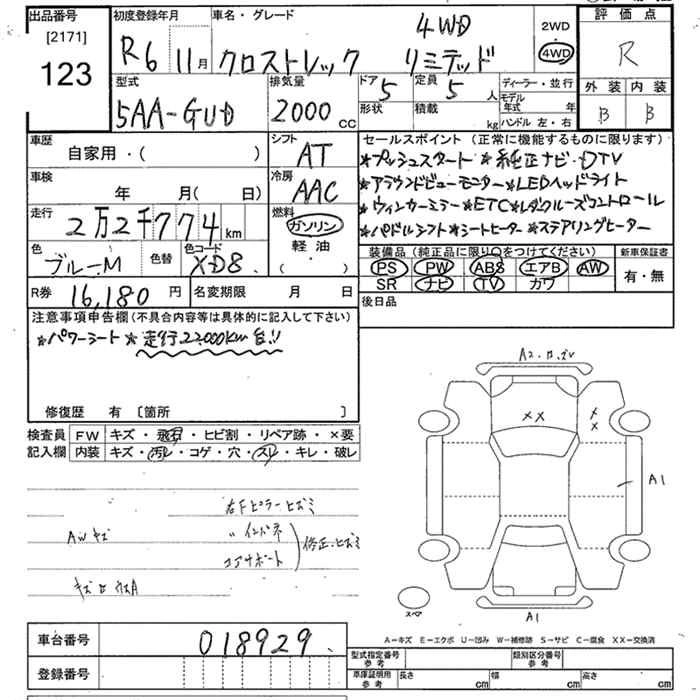 出品番号 初度登録年月 車名・グレード 2WD 4WD 評価点
[2171]
123
R6 11月 クロストレック 4WD リミテッド R
型式 排気量 ドア 定員 ディーラー・並行 外装 内装
5AA-GUD 2000CC 5 5人 モデル年式 年 B B
形状 積載 kg ハンドル 左・右
車歴 シフト セールスポイント(正常に機能するものに限ります)
自家用・( ) AT *プッシュスタート *純正ナビ・DTV
車検 冷房 *アラウンドビューモニター *LEDヘッドライト
年 月(日) AAC *ウィンカーミラー *ETC *レダクルーズコントロール
走行 燃料 *パドルシフト *シートヒーター *ステアリングヒーター
2万2千774km ガソリン
軽油・( )
色 色替 色コード 装備品(純正品に限り○をつけてください) 新車保証書
ブルーM XD8 PS PW ABS エアB AW 有・無
SR ナビ TV カワ
R券 16,180円 名変期限 月 日 後日品
注意事項申告欄(不具合内容等は具体的に記入して下さい)
*パワーシート *走行22,000km台!!
修復歴 有 〔箇所 〕
検査員 FW キズ・飛石・ヒビ割・リペア跡・×要
記入欄 内装 キズ・汚レ・コゲ・穴・スレ・キレ・破レ
A2
XX
XX
A1
右Fピラーヒズミ
AWキズ 〃インパネ
コアサポート 修正・ヒズミ
スペア A1
A-キズ E-エクボ U-凹み W-補修跡 S-サビ C-腐食 XX-交換済
車台番号 018929
登録番号
型式指定番号 参考 類別区分番号 参考
車庫証明用 参考 長さ cm 幅 cm 高さ cm